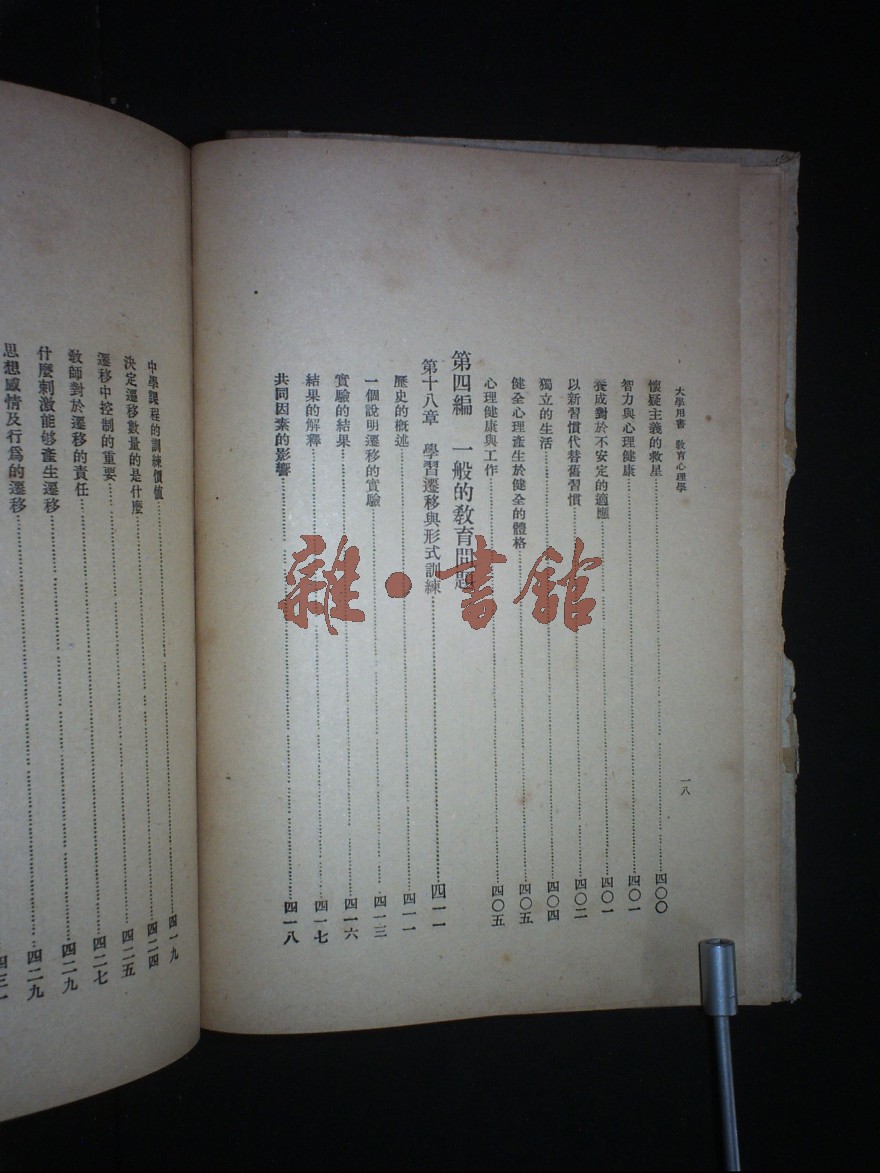 大學用書 教育心理學
一八
懷疑主義的救星……四〇〇
智力與心理健康……四〇一
養成對於不安定的適應……四〇一
以新習慣代替舊習慣……四〇二
獨立的生活……四〇四
健全心理產生於健全的體格……四〇五
心理健康與工作……四〇五
第四編 一般的教育問題
第十八章 學習遷移與形式訓練……四一一
歷史的概述……四一一
一個說明遷移的實驗……四一三
實驗的結果……四一六
結果的解釋……四一七
共同因素的影響……四一八
中學課程的訓練價值……四一九
決定遷移數量的是什麼……四二四
遷移中控制的重要……四二五
教師對於遷移的責任……四二七
什麼刺激能够產生遷移……四二九
思想感情及行爲的遷移……四二九
雜·書館